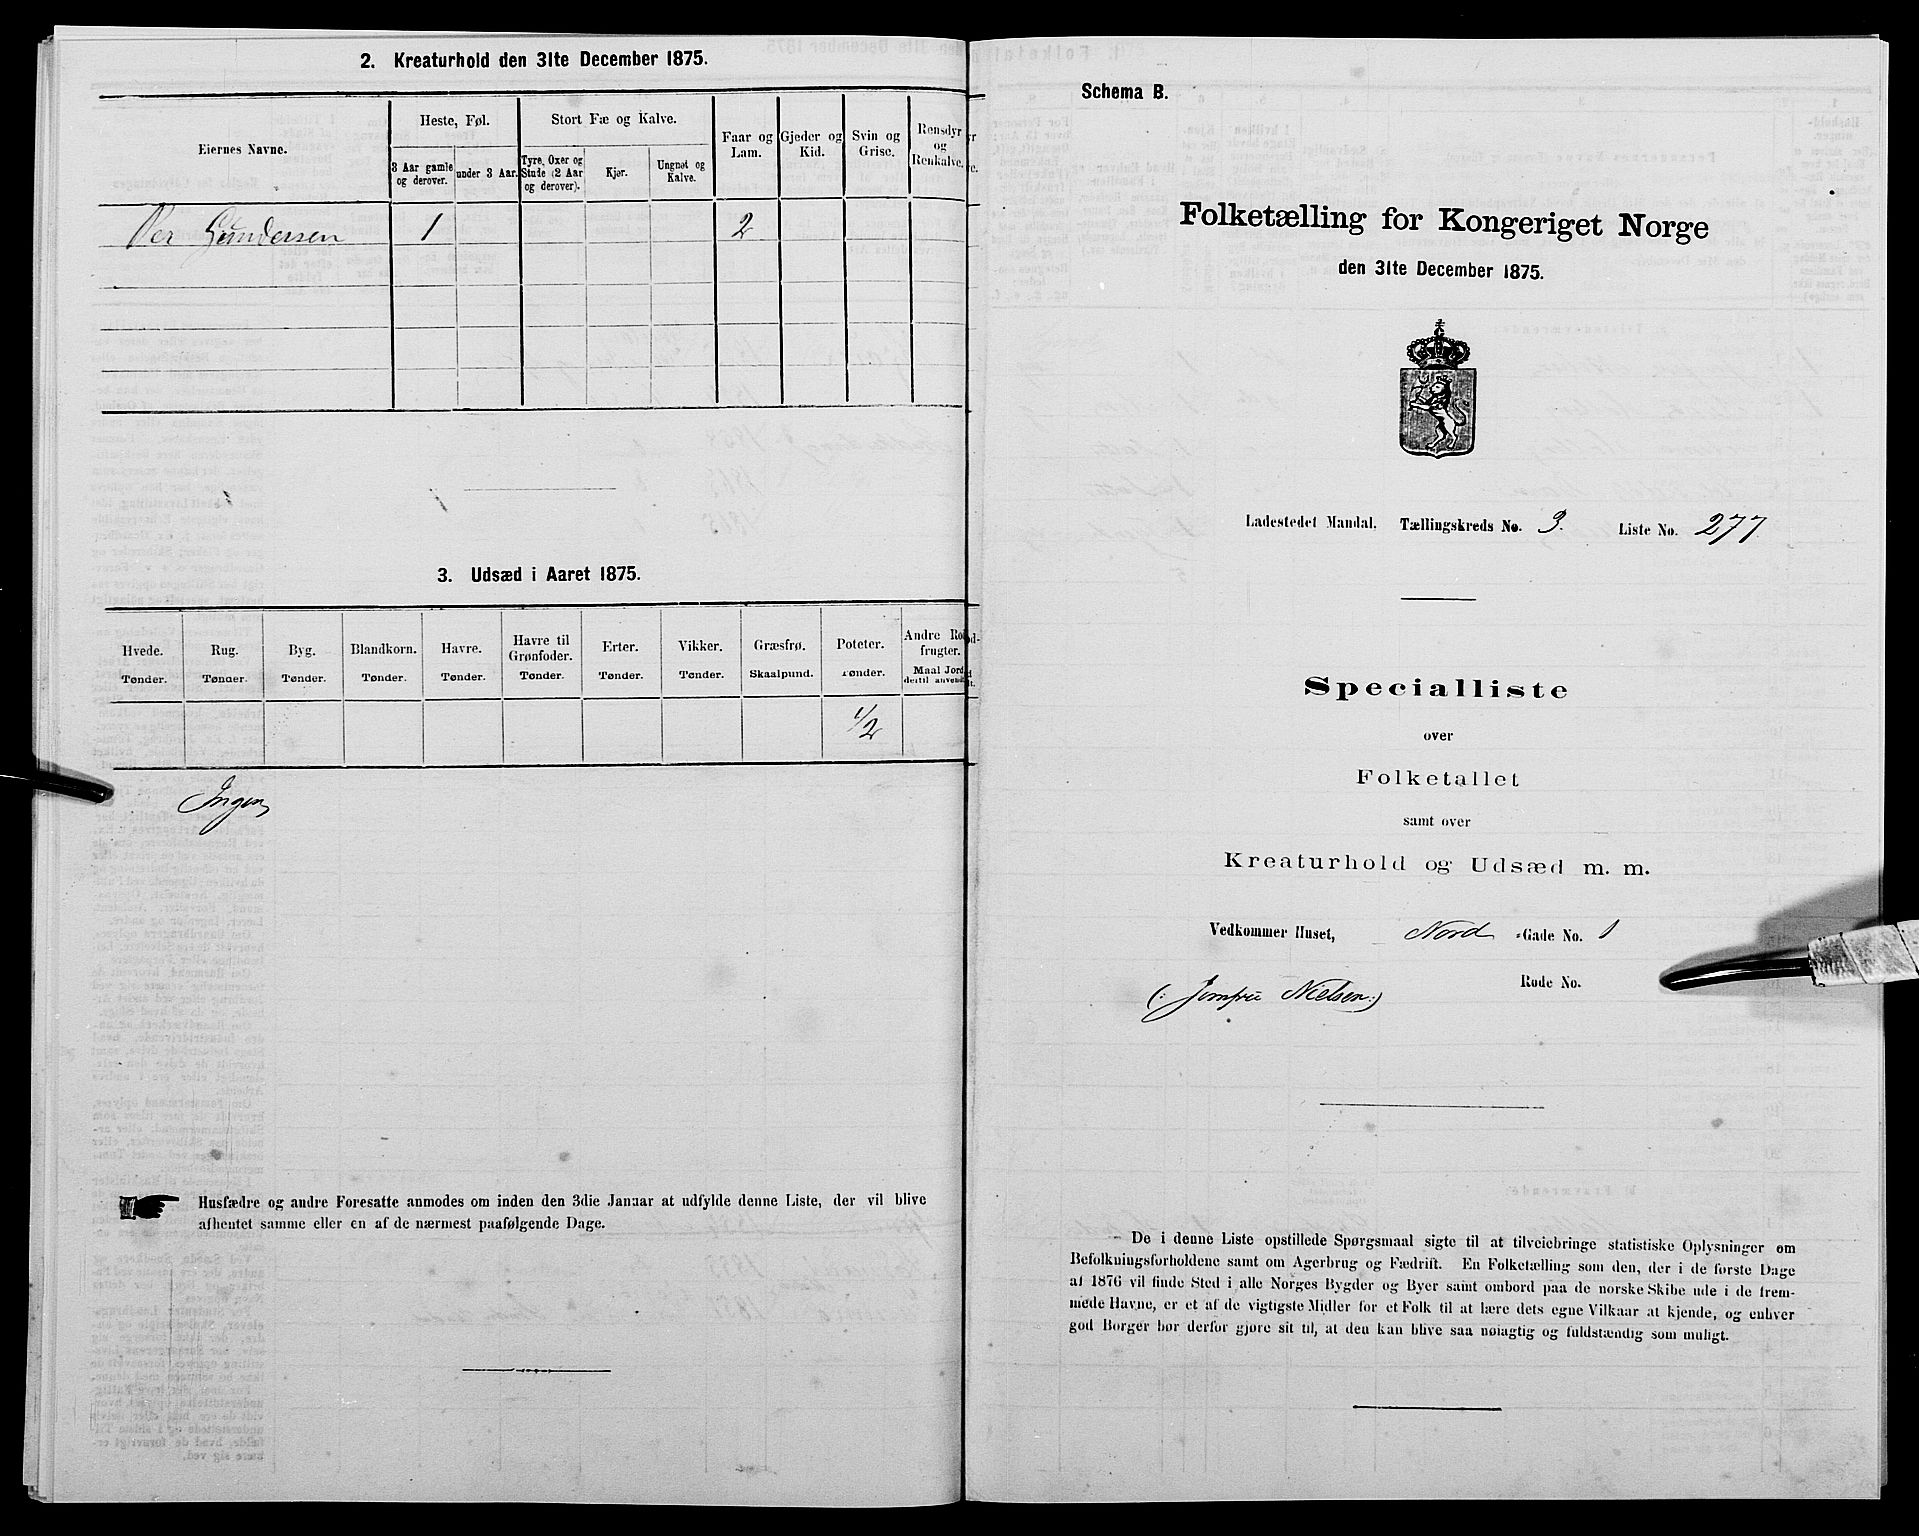 2. Kreaturhold den 31te December 1875.
Eiernes Navne.
Heste, Føl.
Stort Fæ og Kalve.
Faar og Lam.
Gjeder og Kid.
Svin og Grise.
Rensdyr og Renkalve.
3 Aar gamle og derover.
under 3 Aar.
Tyre, Oxer og Stude (2 Aar og derover).
Kjør.
Ungnøt og Kalve.
Per Gundersen 1 2
3. Udsæd i Aaret 1875.
Hvede. Rug. Byg. Blandkorn. Havre. Havre til Grønfoder. Erter. Vikker. Græsfrø. Poteter. Andre Rodfrugter.
Tønder. Tønder. Tønder. Tønder. Tønder. Tønder. Tønder. Tønder. Skaalpund. Tønder. Maal Jord dertil anvendt.
1/2
Ingen
Husfædre og andre Foresatte anmodes om inden den 3die Januar at udfylde denne Liste, der vil blive
afhentet samme eller en af de nærmest paafølgende Dage.
Schema B.
Folketælling for Kongeriget Norge
den 31te December 1875.
Ladestedet Mandal. Tællingskreds No. 3. Liste No. 277
Specialliste
over
Folketallet
samt over
Kreaturhold og Udsæd m. m.
Vedkommer Huset, Nord -Gade No. 1
Rode No.
(: Jomfru Nielsen :)
De i denne Liste opstillede Spørgsmaal sigte til at tilveiebringe statistiske Oplysninger om
Befolkningsforholdene samt om Agerbrug og Fædrift. En Folketælling som den, der i de første Dage
af 1876 vil finde Sted i alle Norges Bygder og Byer samt ombord paa de norske Skibe ude i de frem-
mede Havne, er et af de vigtigste Midler for et Folk til at lære dets egne Vilkaar at kjende, og enhver
god Borger bør derfor gjøre sit til, at den kan blive saa nøiagtig og fuldstændig som muligt.